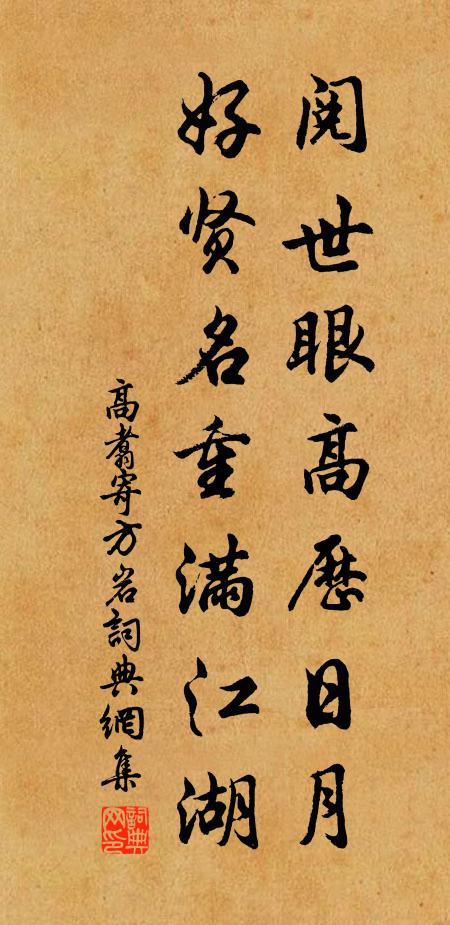 阅世眼高历日月
好贤名重满江湖
高翥寄方岩詞典網集
詞典网印